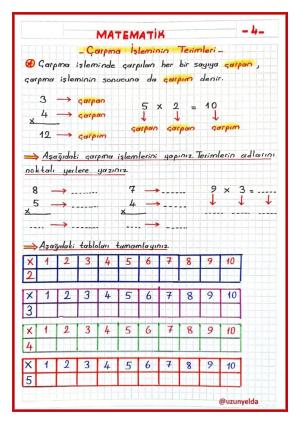 MATEMATİK -4-
- Çarpma İşleminin Terimleri -
Çarpma işleminde çarpılan her bir sayıya çarpan,
çarpma işleminin sonucuna da çarpım denir.
3 → çarpan
4 → çarpan
x
12 → çarpım
5 x 2 = 10
çarpan çarpan çarpım
⇒ Aşağıdaki çarpma işlemlerini yapınız. Terimlerin adlarını
noktalı yerlere yazınız.
8 → ......
5 → ......
x
.... → ......
7 → ......
4 → ......
x
.... → ......
9 x 3 = ......
...... ...... ......
⇒ Aşağıdaki tabloları tamamlayınız.
X 1 2 3 4 5 6 7 8 9 10
2
X 1 2 3 4 5 6 7 8 9 10
3
X 1 2 3 4 5 6 7 8 9 10
4
X 1 2 3 4 5 6 7 8 9 10
5
@uzunyelda